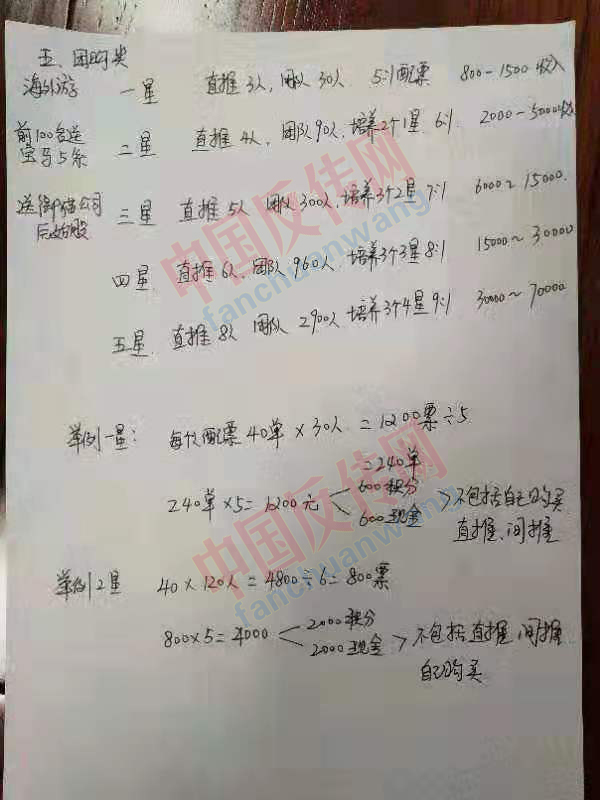 五、团购类
海外游 一星 直推3人,团队30人. 5:1配票 800-1500收入
前100名送宝马5系 二星 直推4人,团队90人,培养2个1星 6:1 2000-5000收入
送御猫公司原始股 三星 直推5人 团队300人.培养3个2星7:1 6000~15000.
四星. 直推6人,团队960人.培养3个3星8:1 15000~30000
五星 直推8人 团队2900人.培养3个4星9:1 30000~70000
举例一星: 每个配票40单×30人=1200票÷5
=240单
240单×5=1200元 600积分 600现金 >不包括自己购买
直推、间推
举例2星 40×120人=4800÷6=800票
800×5=4000 2000积分 2000现金 >不包括直推、间推
自己购买
中国反传网
fanchuanwang
中国反传网
fanchuanwang